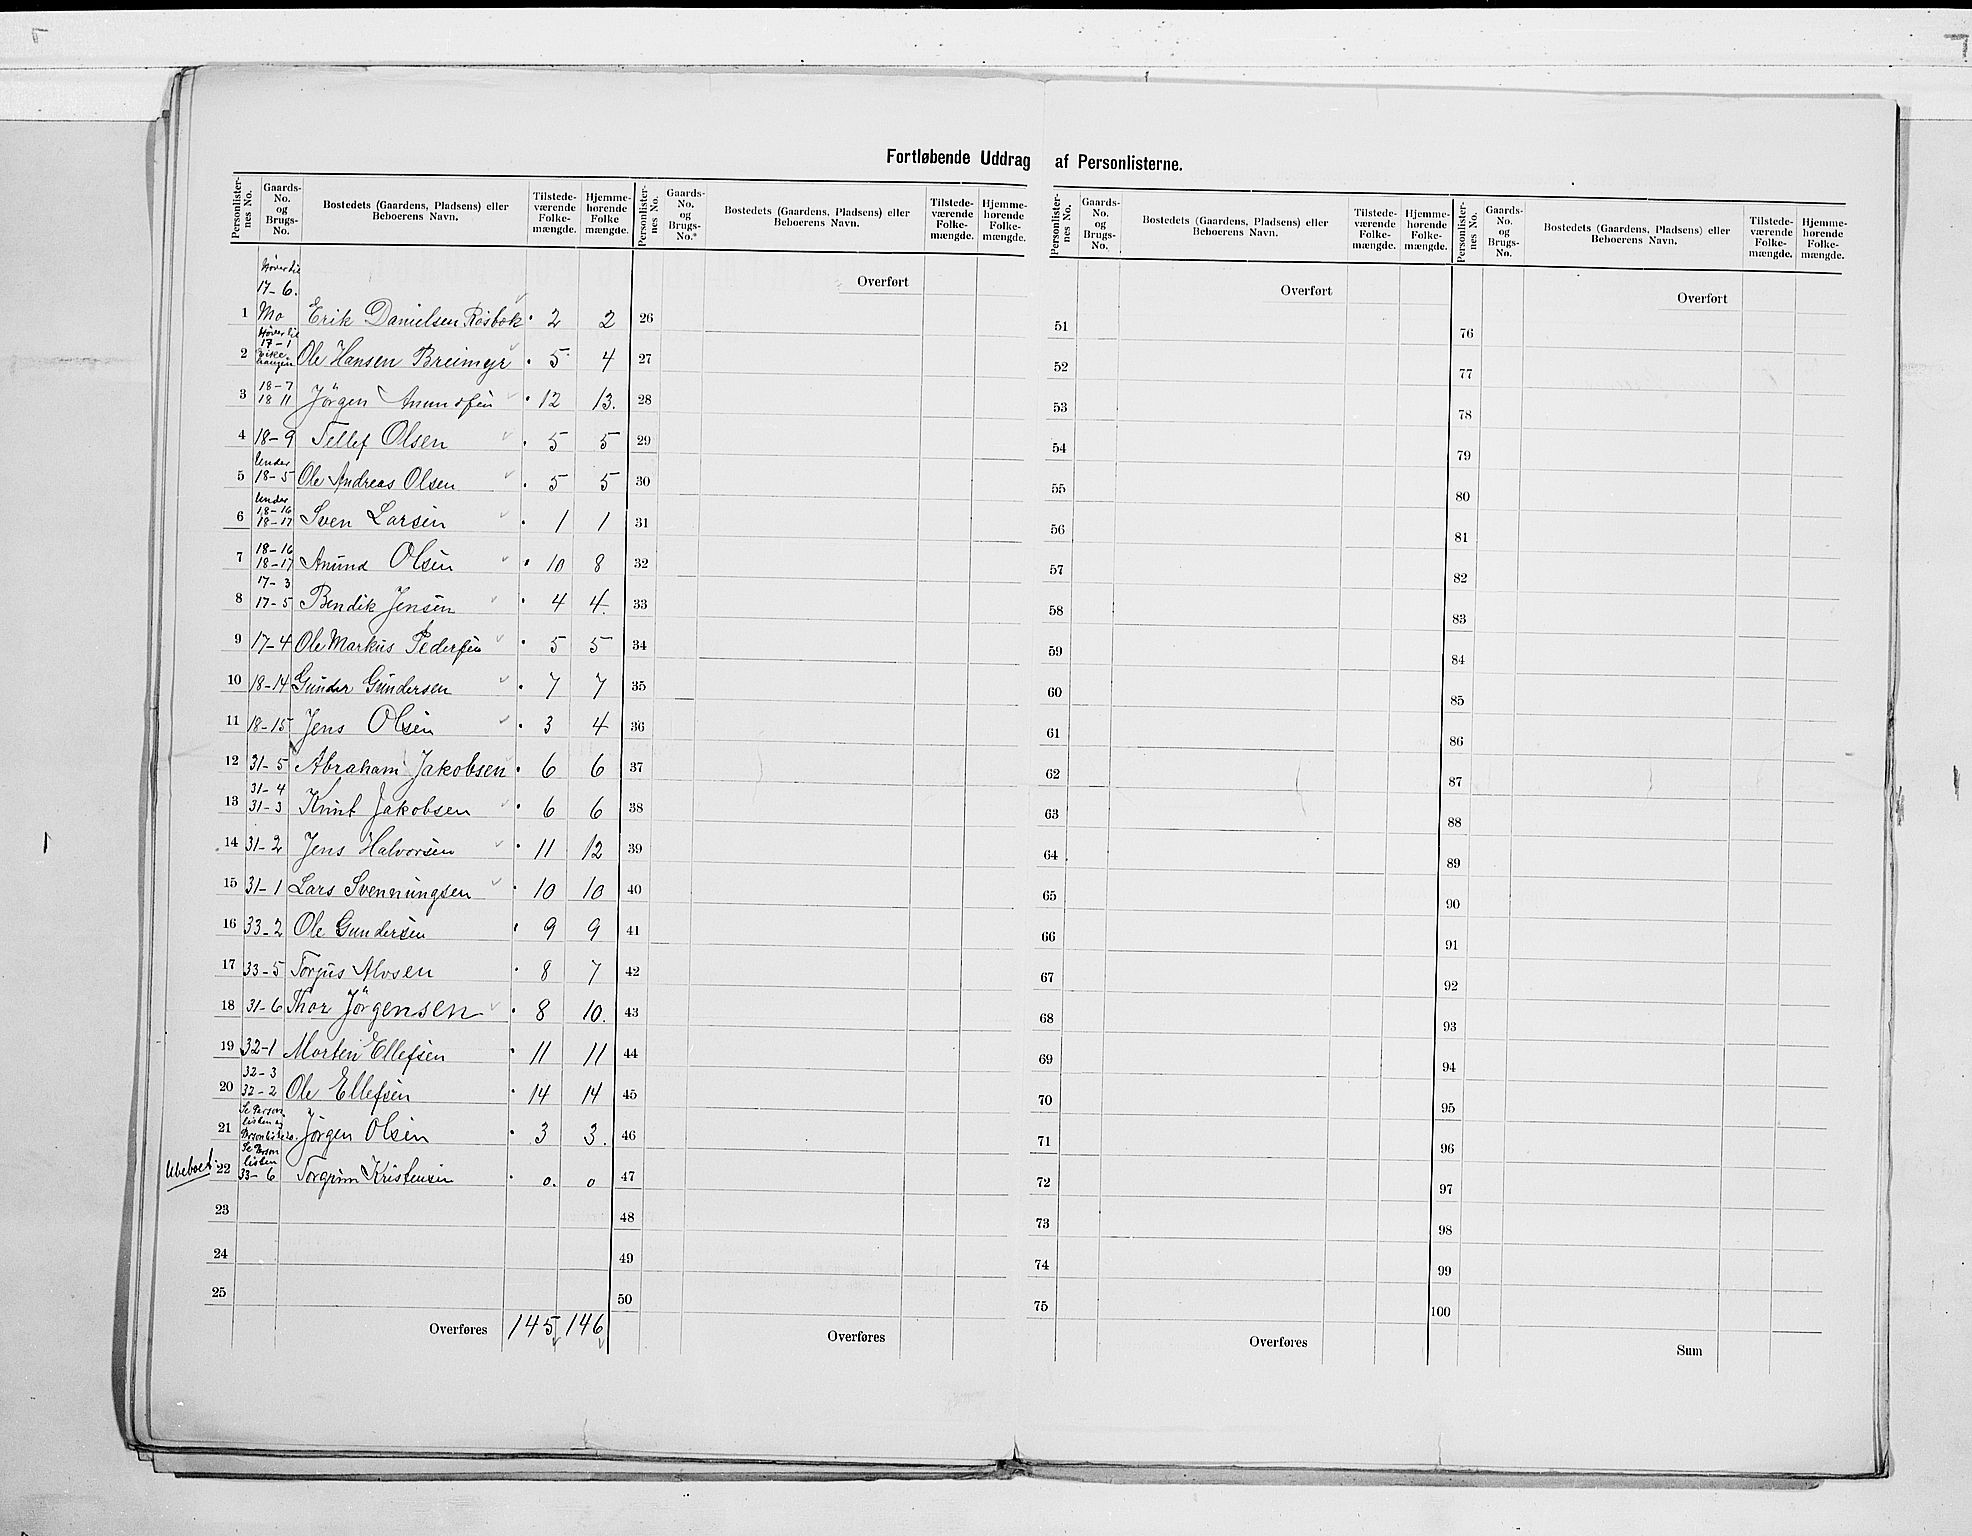 Fortløbende Uddrag af Personlisterne.
Personlisternes No. Gaards-No. og Brugs-No. Bostedets (Gaardens, Pladsens) eller Beboerens Navn. Tilstedeværende Folkemængde. Hjemmehørende Folkemængde.
Hører til
17-6.
1 Mo Erik Danielsen Røsbok 2 2
Hører til
17-1
2 Ole Hansen Breimyr 5 4
18-7
3 18 11 Jörgen Anundsen 12 13.
4 18-9 Tellef Olsen 5 5
Under
5 18-5 Ole Andreas Olsen 5 5
Under
18-16
6 18-17 Sven Larsen 1 1
18-16
7 18-17 Anund Olsen 10 8
17-3
8 17-5 Bendik Jensen 4 4.
9 17-4 Ole Markus Pedersen 5 5
10 18-14 Gunder Gundersen 7 7
11 18-15 Jens Olsen 3 4
12 31-5 Abraham Jakobsen 6 6
31-4
13 31-3 Knut Jakobsen 6 6
14 31-2 Jens Halvorsen 11 12
15 31-1 Lars Svennungsen 10 10
16 33-2 Ole Gundersen 9 9
17 33-5 Torjus Alvsen 8 7
18 31-6 Thor Jörgensen 8 10.
19 32-1 Morten Ellefsen 11 11
32-3
20 32-2 Ole Ellefsen 14 14
Se Person
listen
21 Jörgen Olsen 3 3.
Se Person
listen
Ubeboet. 22 33-6 Torgrim Kristensen 0. 0
23
24
25
Overføres 145 146
Personlisternes No. Gaards-No. og Brugs-No.* Bostedets (Gaardens, Pladsens) eller Beboerens Navn. Tilstedeværende Folkemængde. Hjemmehørende Folkemængde.
Overført
26
27
28
29
30
31
32
33
34
35
36
37
38
39
40
41
42
43
44
45
46
47
48
49
50
Overføres
Personlisternes No. Gaards-No. og Brugs-No. Bostedets (Gaardens, Pladsens) eller Beboerens Navn. Tilstedeværende Folkemængde. Hjemmehørende Folkemængde.
Overført
51
52
53
54
55
56
57
58
59
60
61
62
63
64
65
66
67
68
69
70
71
72
73
74
75
Overføres
Personlisternes No. Gaards-No. og Brugs-No. Bostedets (Gaardens, Pladsens) eller Beboerens Navn. Tilstedeværende Folkemængde. Hjemmehørende Folkemængde.
Overført
76
77
78
79
80
81
82
83
84
85
86
87
88
89
90
91
92
93
94
95
96
97
98
99
100
Sum